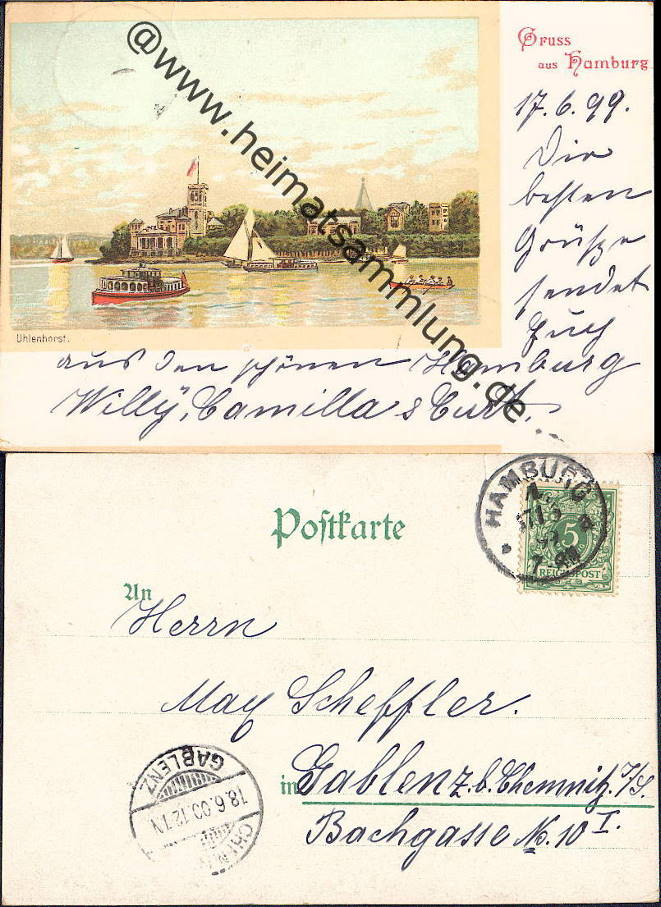 @www.heimatsammlung.de
Gruss
aus Hamburg
17.6.99.
Die
besten
Grüße
sendet
Euch
aus dem schönen Hamburg
Willy, Camilla & Curt.
Uhlenhorst.
Postkarte
HAMBURG
5
REICHSPOST
An
Herrn
Max Scheffler.
in Gablenz b. Chemnitz. i/S.
Bachgasse No. 10 I.
GABLENZ
18.6.